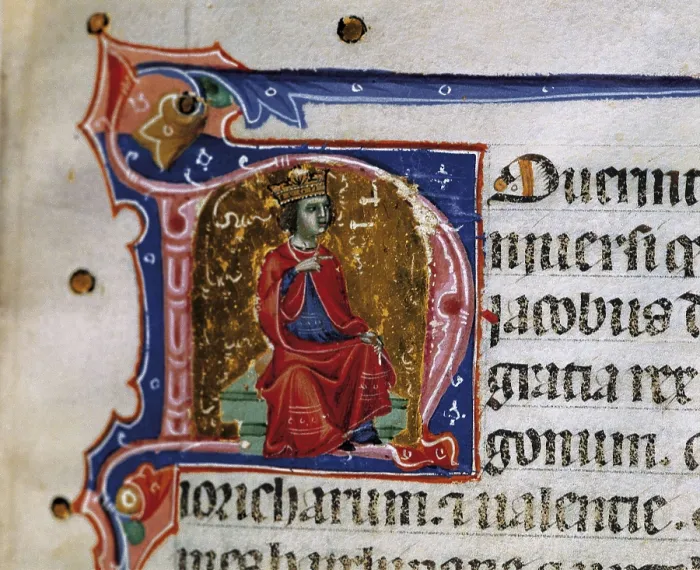 NOuerint
uniuersi q
Jacobus d
gratia rex
gonum.
ioricharum. ⁊ ualentie.